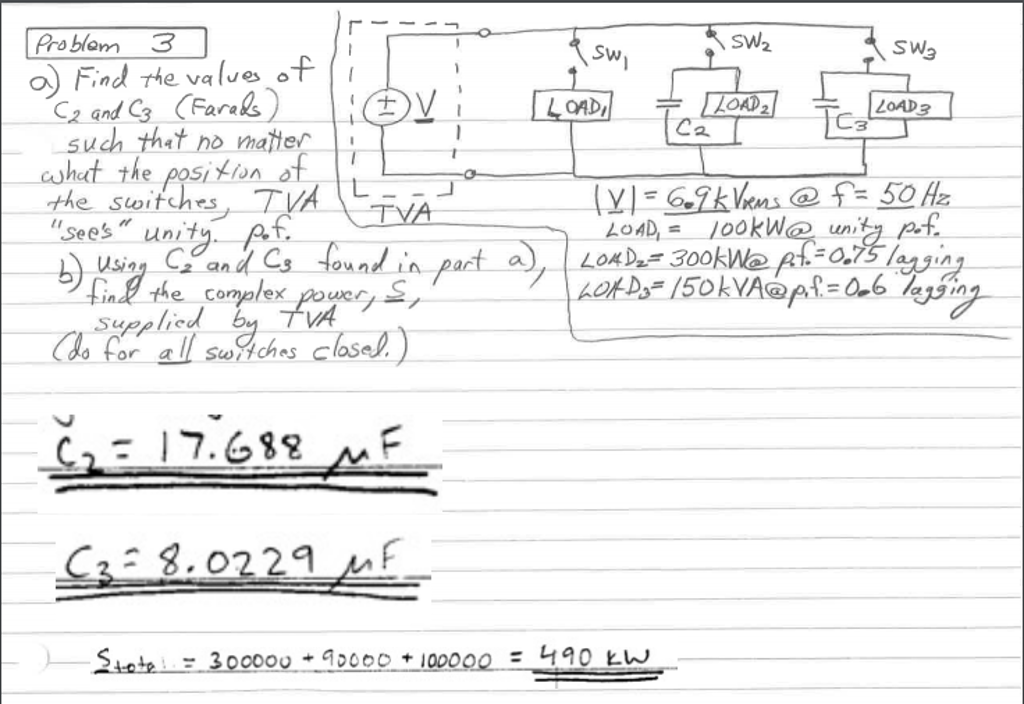 Problem 3
a) Find the values of
C2 and C3 (Farads)
such that no matter
what the position of
the switches, TVA
"see's" unity. p.f.
b) Using C2 and C3 found in part a),
find the complex power, S,
supplied by TVA
(do for all switches closed.)
± V
TVA
SW1
SW2
SW3
LOAD1
C2
LOAD2
C3
LOAD3
|V| = 6.9kVRMS @ f = 50 Hz
LOAD1 = 100KW@ unity p.f.
LOAD2= 300KW@ p.f.=0.75 lagging
LOAD3= 150KVA@p.f.=0.6 lagging
C2 = 17.688 μF
C3 = 8.0229 μF
Stotal = 300000 + 90000 + 100000 = 490 kW